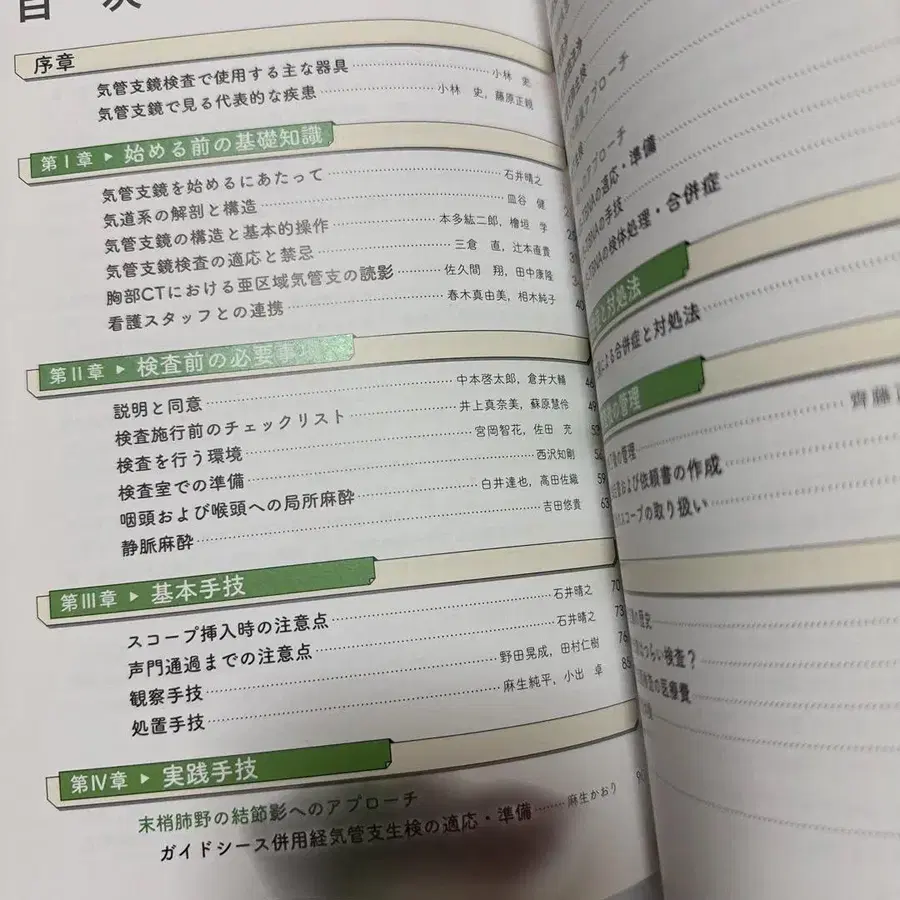 目 次
序章
気管支鏡検査で使用する主な器具 小林 史
気管支鏡で見る代表的な疾患 小林 史，藤原正親
第Ⅰ章 ▶ 始める前の基礎知識
気管支鏡を始めるにあたって 石井晴之
気道系の解剖と構造 皿谷 健
気管支鏡の構造と基本的操作 本多紘二郎，檜垣 学
気管支鏡検査の適応と禁忌 三倉 直，辻本直貴
胸部CTにおける亜区域気管支の読影 佐久間 翔，田中康隆
看護スタッフとの連携 春木真由美，相木純子 40
第Ⅱ章 ▶ 検査前の必要事項
説明と同意 中本啓太郎，倉井大輔 46
検査施行前のチェックリスト 井上真奈美，蘇原慧伶 49
検査を行う環境 宮岡智花，佐田 充 53
検査室での準備 西沢知剛 56
咽頭および喉頭への局所麻酔 白井達也，高田佐織 59
静脈麻酔 吉田悠貴 63
第Ⅲ章 ▶ 基本手技
スコープ挿入時の注意点 石井晴之 70
声門通過までの注意点 石井晴之 73
観察手技 野田晃成，田村仁樹 76
処置手技 麻生純平，小出 卓 85
第Ⅳ章 ▶ 実践手技
末梢肺野の結節影へのアプローチ
ガイドシース併用経気管支生検の適応・準備 麻生かおり
アプローチ
アプローチ
TBNAの適応・準備
TBNAの手技
TBNAの検体処理・合併症
と対処法
による合併症と対処法
の管理
の管理 齊藤
および依頼書の作成
スコープの取り扱い
の歴史
つらい検査？
検査の医療費